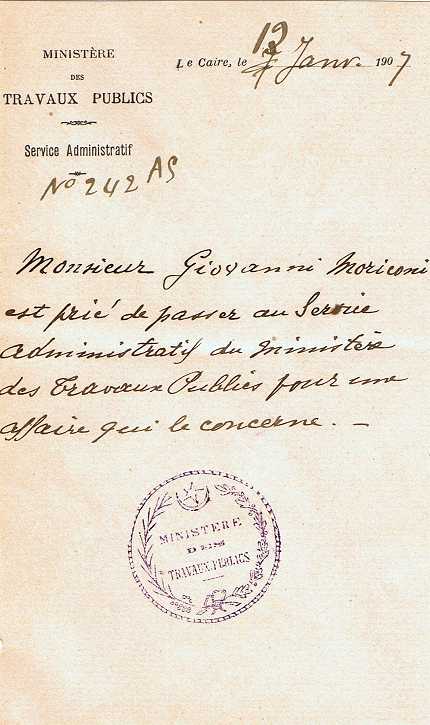 MINISTÈRE
DES
TRAVAUX PUBLICS
Service Administratif
No 242 AS
Le Caire, le 12 Janv. 1907
Monsieur Giovanni Moriconi
est prié de passer au Service
Administratif du Ministère
des Travaux Publics pour une
affaire qui le concerne. —
MINISTÈRE
DES
TRAVAUX PUBLICS